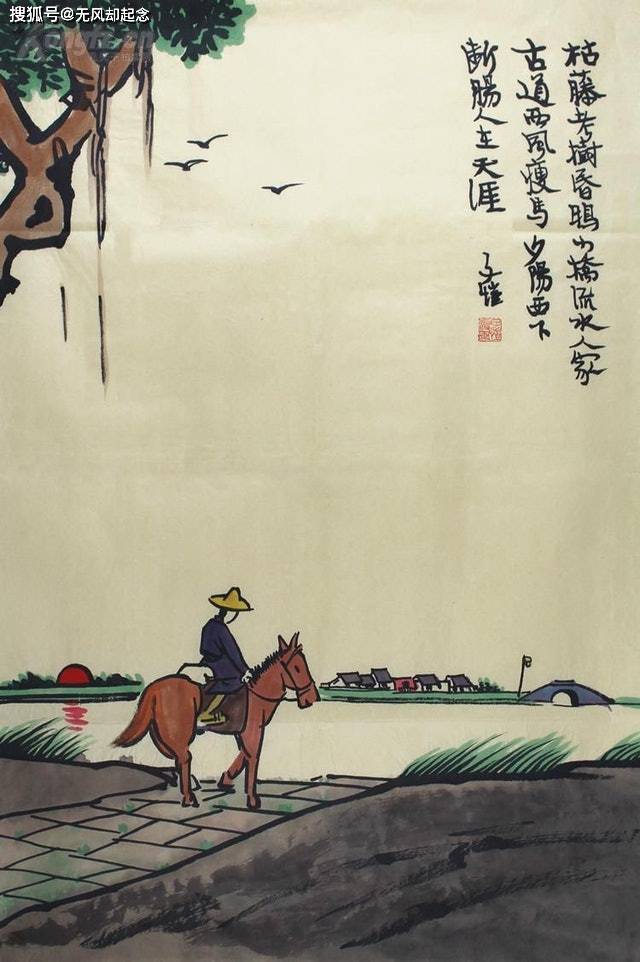 搜狐号@无风却起念
枯藤老樹昏鴉小橋流水人家
古道西風瘦馬夕陽西下
断腸人在天涯
子愷